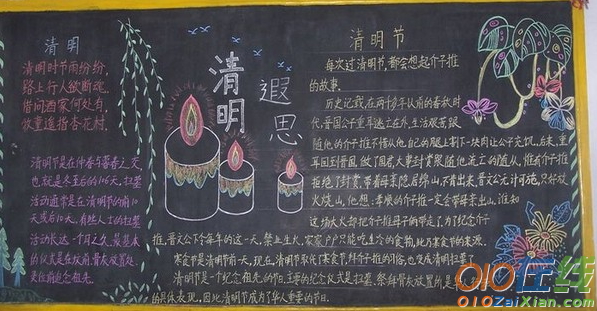 清明
清明时节雨纷纷,
路上行人欲断魂。
借问酒家何处有,
牧童遥指杏花村。
清明节是在仲春与暮春之交
也就是冬至后的106天。扫墓
活动通常是在清明节的前10
天或后10天。有些人士的扫墓
活动长达一个月之久。最基本
的仪式是在坟前、骨灰放置处
清明
遐思
清明节
每次过清明节,都会想起介子推
的故事。
历史记载,在两千多年以前的春秋时
代,晋国公子重耳逃亡在外,生活艰苦,跟
随他的介子推不惜从自己的腿上割下一块肉让公子充饥。后来,重
耳回到晋国,做了国君,大事封赏跟随他流亡的随从,惟有介子推
拒绝了封赏,带着母亲隐居绵山,不肯出来,晋文公无计可施,只好放
火烧山,他想:孝顺的介子推一定会带母亲出山。谁知
这场大火却把介子推母子俩带走了,为了纪念介子
推,晋文公下令每年的这一天,禁止生火,家家户户只能吃生冷的食物,此乃寒食节的来源。
寒食节是清明节前一天,现在,清明节取代了寒食节,拜介子推的习俗,也变成清明扫墓了
清明节是一个纪念祖先的节日,主要的纪念仪式是扫墓,
的具体表现,因此清明节成为了华人重要的节日。
010在线
010ZaiXian.com